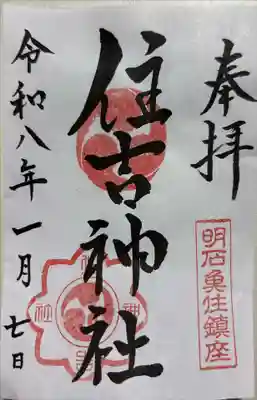 奉拝
明石魚住鎮座
住吉神社
令和八年一月七日